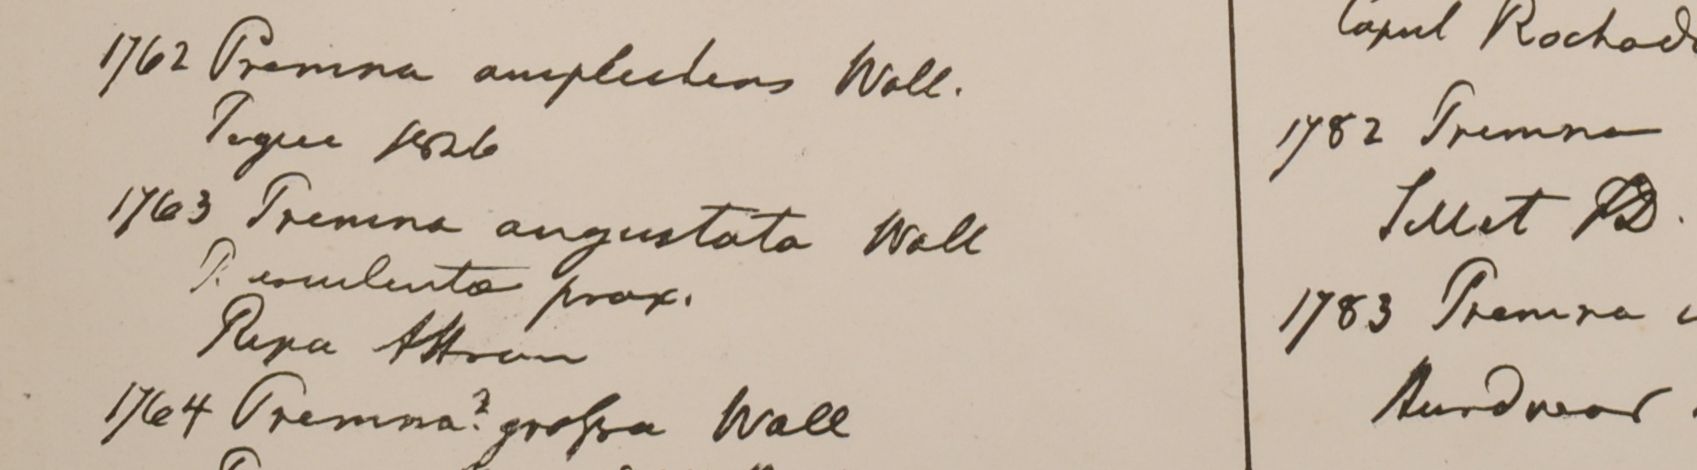 1762 Premna amplectens Wall.
Togue 1826
1763 Premna angustata Wall
P. esculenta prox.
Ripa Attran
1764 Premna? grossa Wall
Caput
1782 Premna
Sillet FD.
1783 Premna
Hurdwar